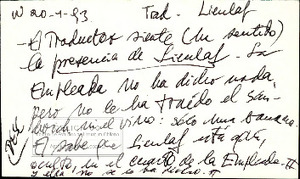 N 20-1-83 Trad. Lienlaf
- El Traductor siente (un sentido)
la presencia de Lienlaf - La
Empleada no ha dicho nada
pero no le ha traído el sán-
ni el vino: sólo una banana.
El sabe que Lienlaf está aquí,
oculto, en el cuarto de la Empleada -
y ella no se lo ha dicho.